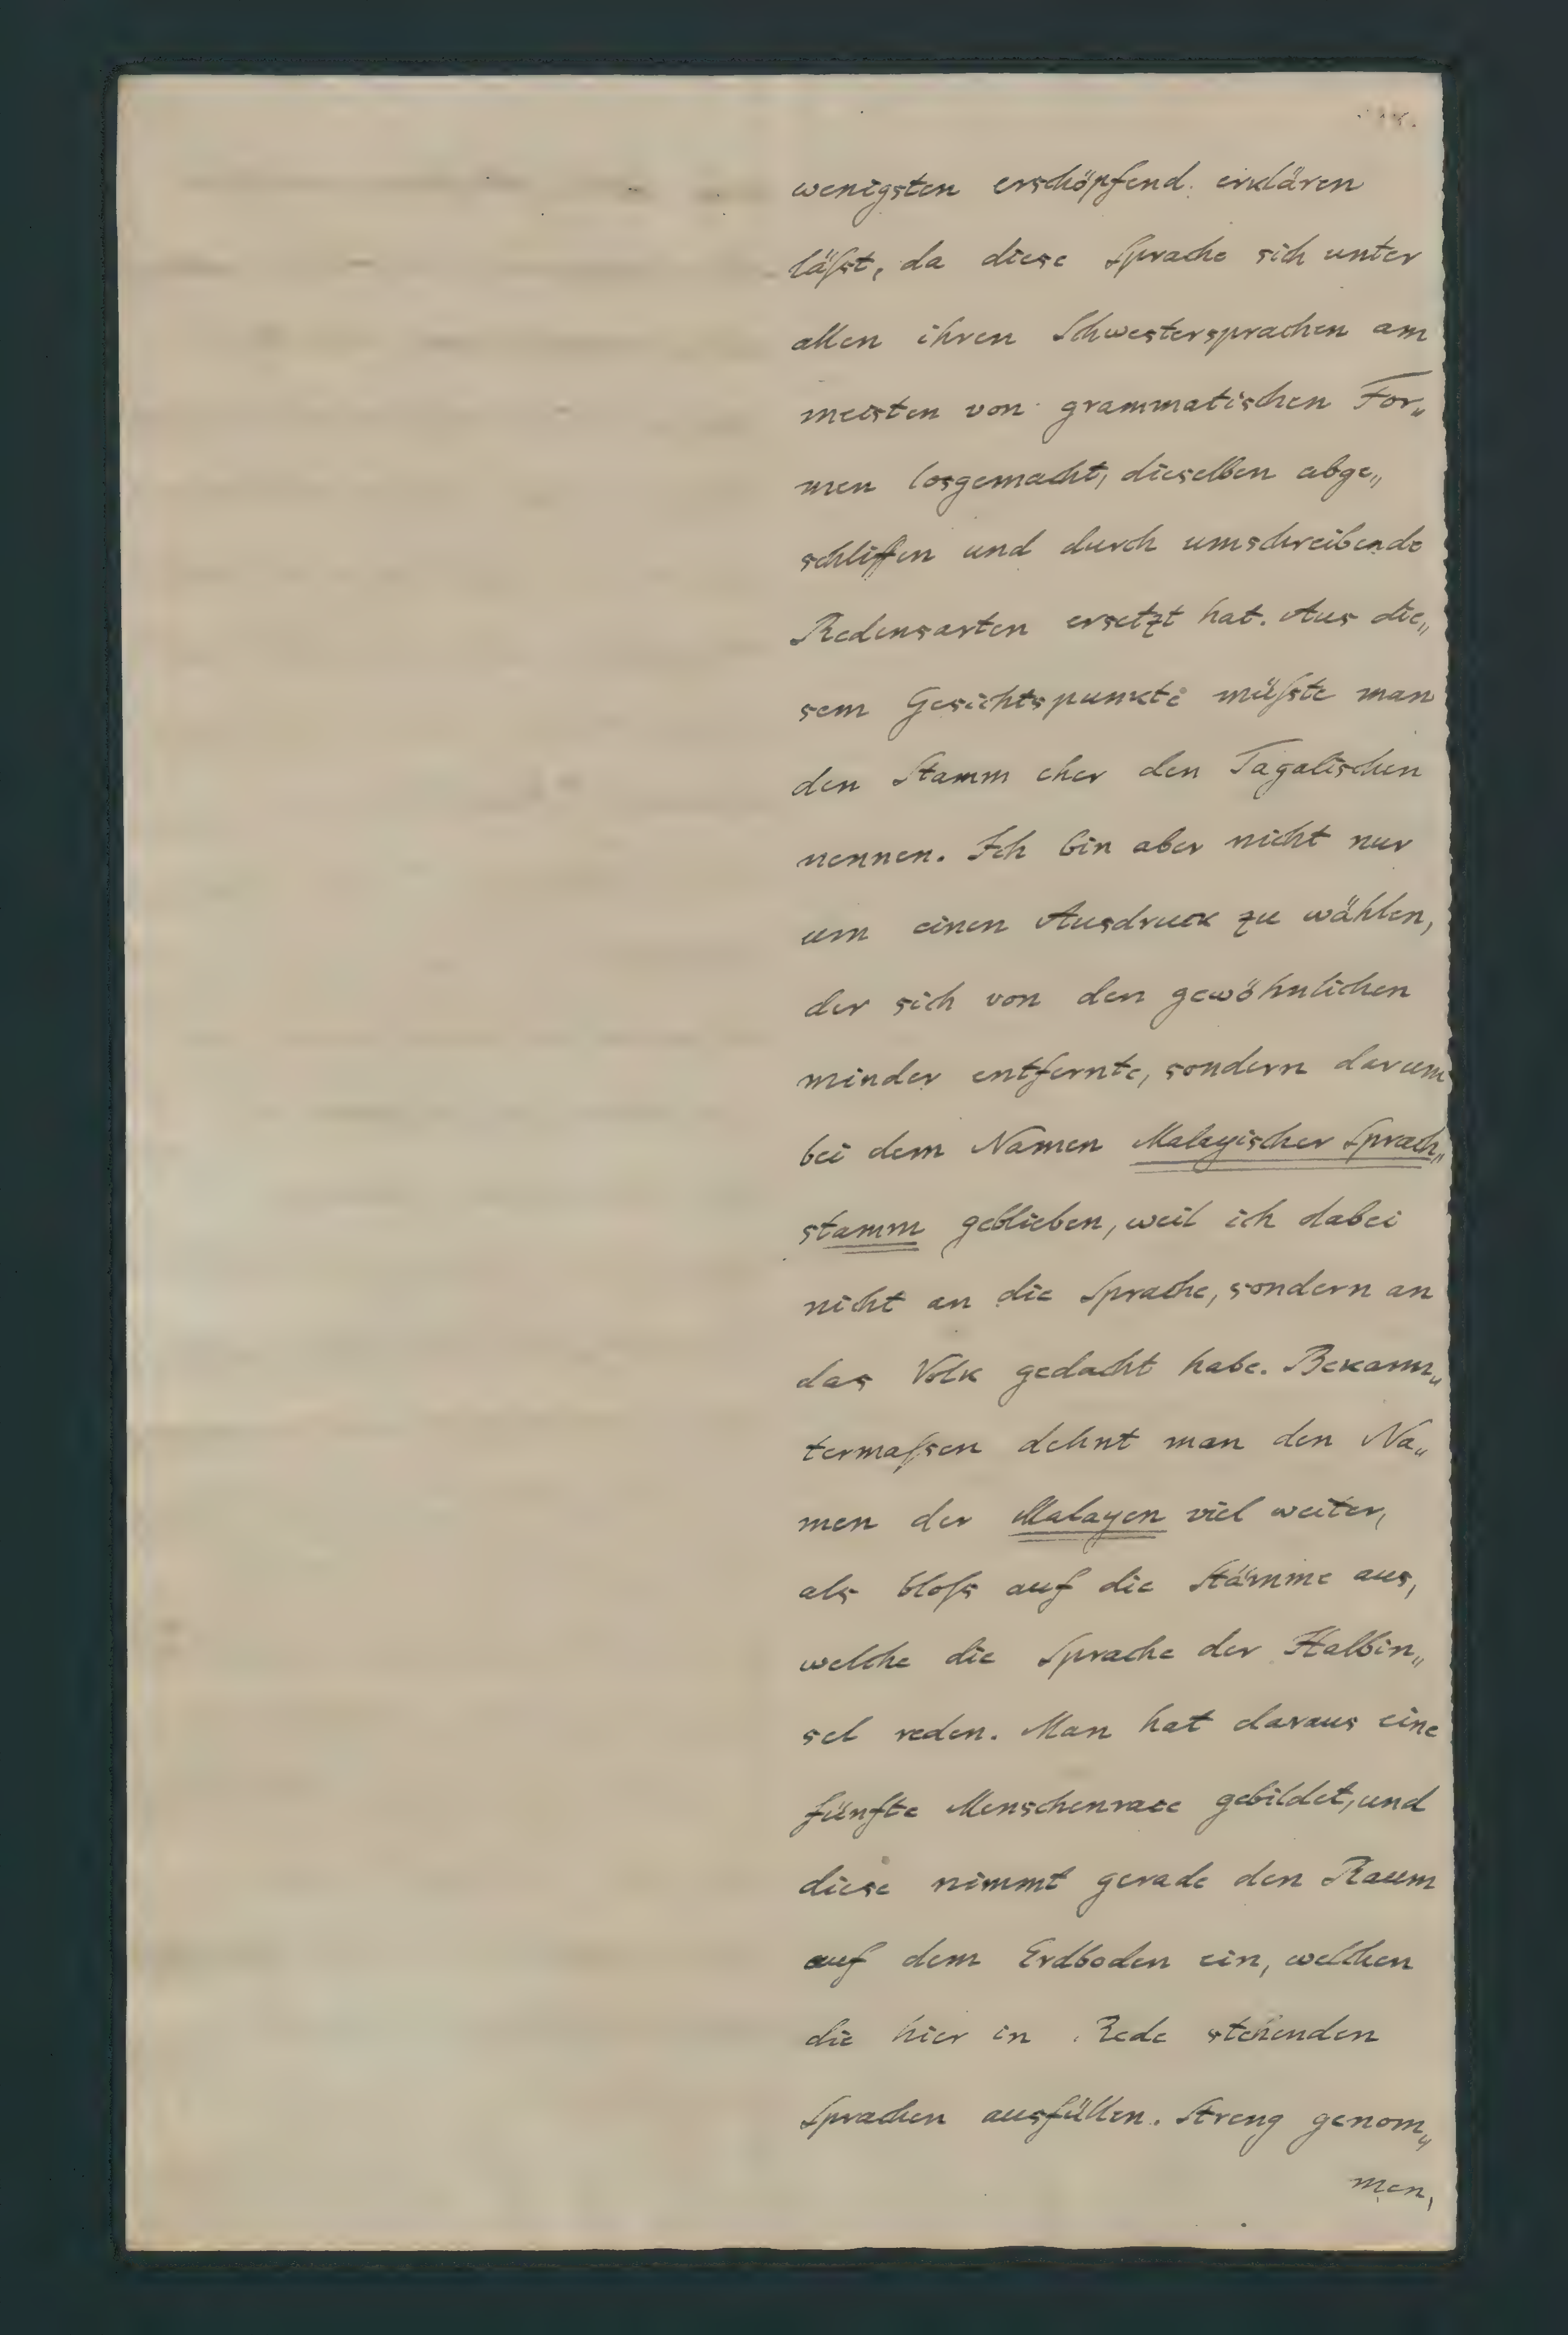 wenigsten erschöpfend erklären
läſst, da diese Sprache sich unter
allen ihren Schwestersprachen am
meisten von grammatischen For„
men losgemacht, dieselben abge„
schliffen und durch umschreibende
Redensarten ersetzt hat. Aus die„
sem Gesichtspunkte müſste man
den Stamm eher den Tagalischen
nennen. Ich bin aber nicht nur
um einen Ausdruck zu wählen,
der sich von den gewöhnlichen
minder entfernte, sondern darum
bei dem Namen Malayischer Sprach„
stamm geblieben, weil ich dabei
nicht an die Sprache, sondern an
das Volk gedacht habe. Bekann„
termaſsen dehnt man den Na„
men der Malayen viel weiter,
als bloſs auf die Stämme aus,
welche die Sprache der Halbin„
sel reden. Man hat daraus eine
fünfte Menschenrace gebildet, und
diese nimmt gerade den Raum
auf dem Erdboden ein, welchen
die hier in Rede stehenden
Sprachen ausfüllen. Streng genom„
men,